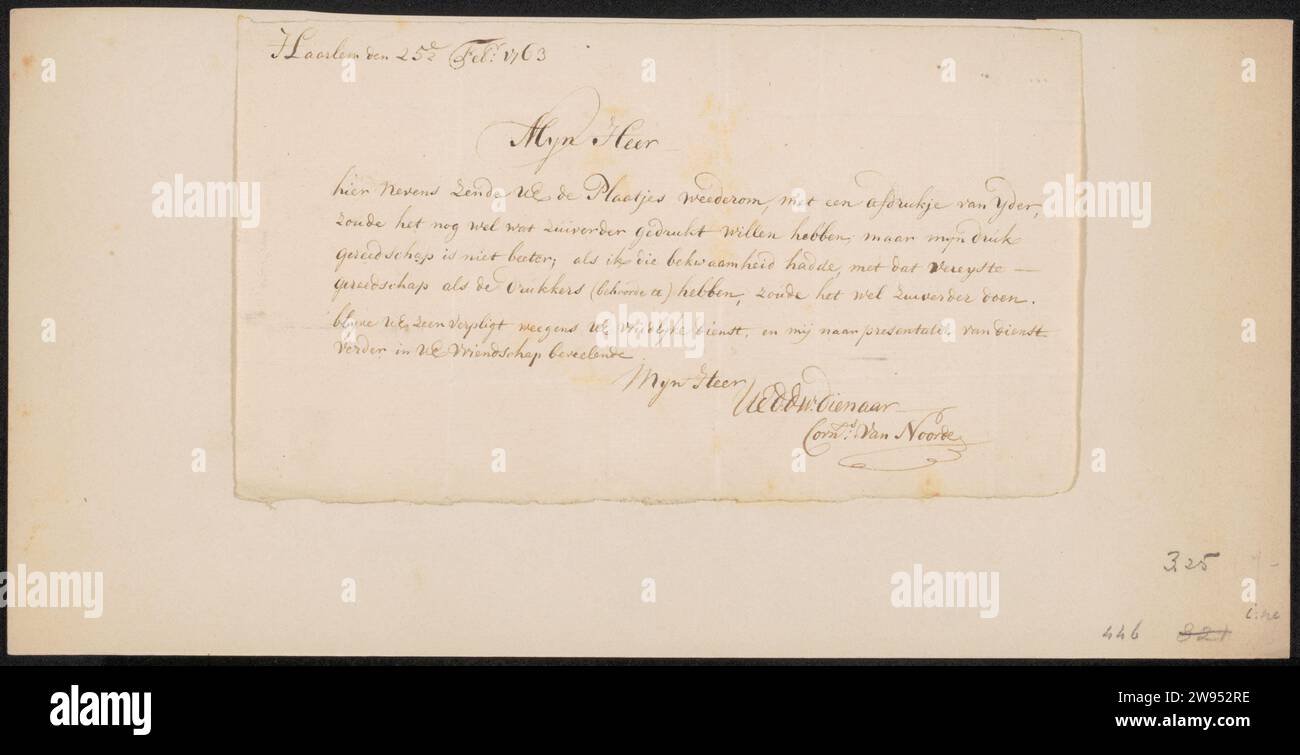 Haarlem den 25e Febr. 1763
Myn Heer
hier nevens zende UE de Plaatjes weederom, met een afdrukje van Yder,
zoude het nog wel wat zuiverder gedrukt willen hebben, maar myn druk
gereedschap is niet beeter; als ik die bekwaamheid hadde, met dat vereyste —
gereedschap als de Drukkers (behoorde te) hebben, zoude het wel zuiverder doen.
blyve UE zeer verpligt weegens UE vrindlyke dienst, en mij naar presentatie van dienst
verder in UE vriendschap beveelende
Myn Heer
UEd.dw: Dienaar
Corns. van Noorde
325
446
321
alamy
Image ID: 2W952RE
www.alamy.com